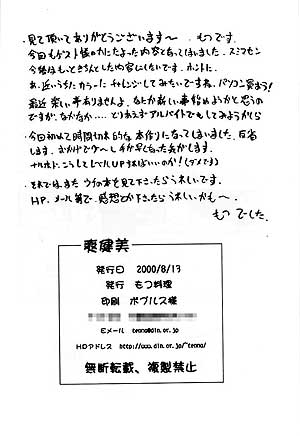 ・見て頂いてありがとうございます〜 もつです。
今回もゲスト様のみになった内容となってしまいました。スミマセン
今後はもっときちんとした内容にしたいです。ホントに。
あ、近いうちにカラーにチャレンジしてみたいですね。パソコン買おう!
最近 楽しい事ありませんよ。なにか新しい事始めようかと思うの
ですが、なかなか…。とりあえずアルバイトでもしてみようかしら
・今回初めて時間的な本作りになってしまいました。反省
します。おかげで〜し手が早くなった気がします。
ナルホド、こうしてレベルUPすればいいのか!(ダメです)
・それでは、また ウチの本を見て下さったらうれしいです。
HP、メール等で 感想とか下さったらうれしいかも〜
もつ でした。
発行日 2000/8/13
発行 もつ料理
印刷 ポプルス様
Eメール teono@din.or.jp
HPアドレス http://www.din.or.jp/~teono/
無断転載、複製禁止